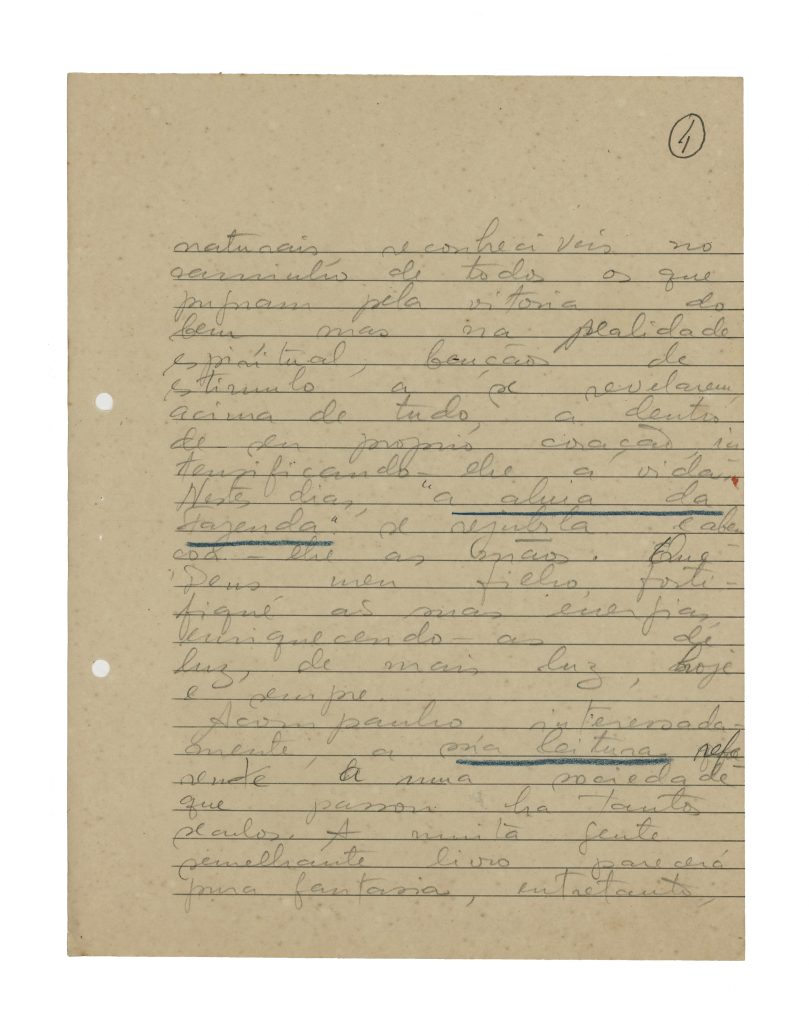 4
naturais reconheciveis no
caminho de todos os que
pugnam pela vitoria do
bem mas na realidade
espiritual, bençãos de
estimulo a se revelarem,
acima de tudo, a dentro
de seu proprio coração, in
tensificando-lhe a vida.
Nestes dias, "a alma da
fazenda" se rejubila e aben-
çoa-lhe as mãos. Que
Deus meu filho, forti-
fique as suas energias,
enriquecendo-as de
luz, de mais luz, hoje
e sempre.
Acompanho interessada-
mente, a sua leitura refe-
rente a uma sociedade
que passou ha tantos
seculos. A muita gente
semelhante livro parecerá
pura fantasia, entretanto,